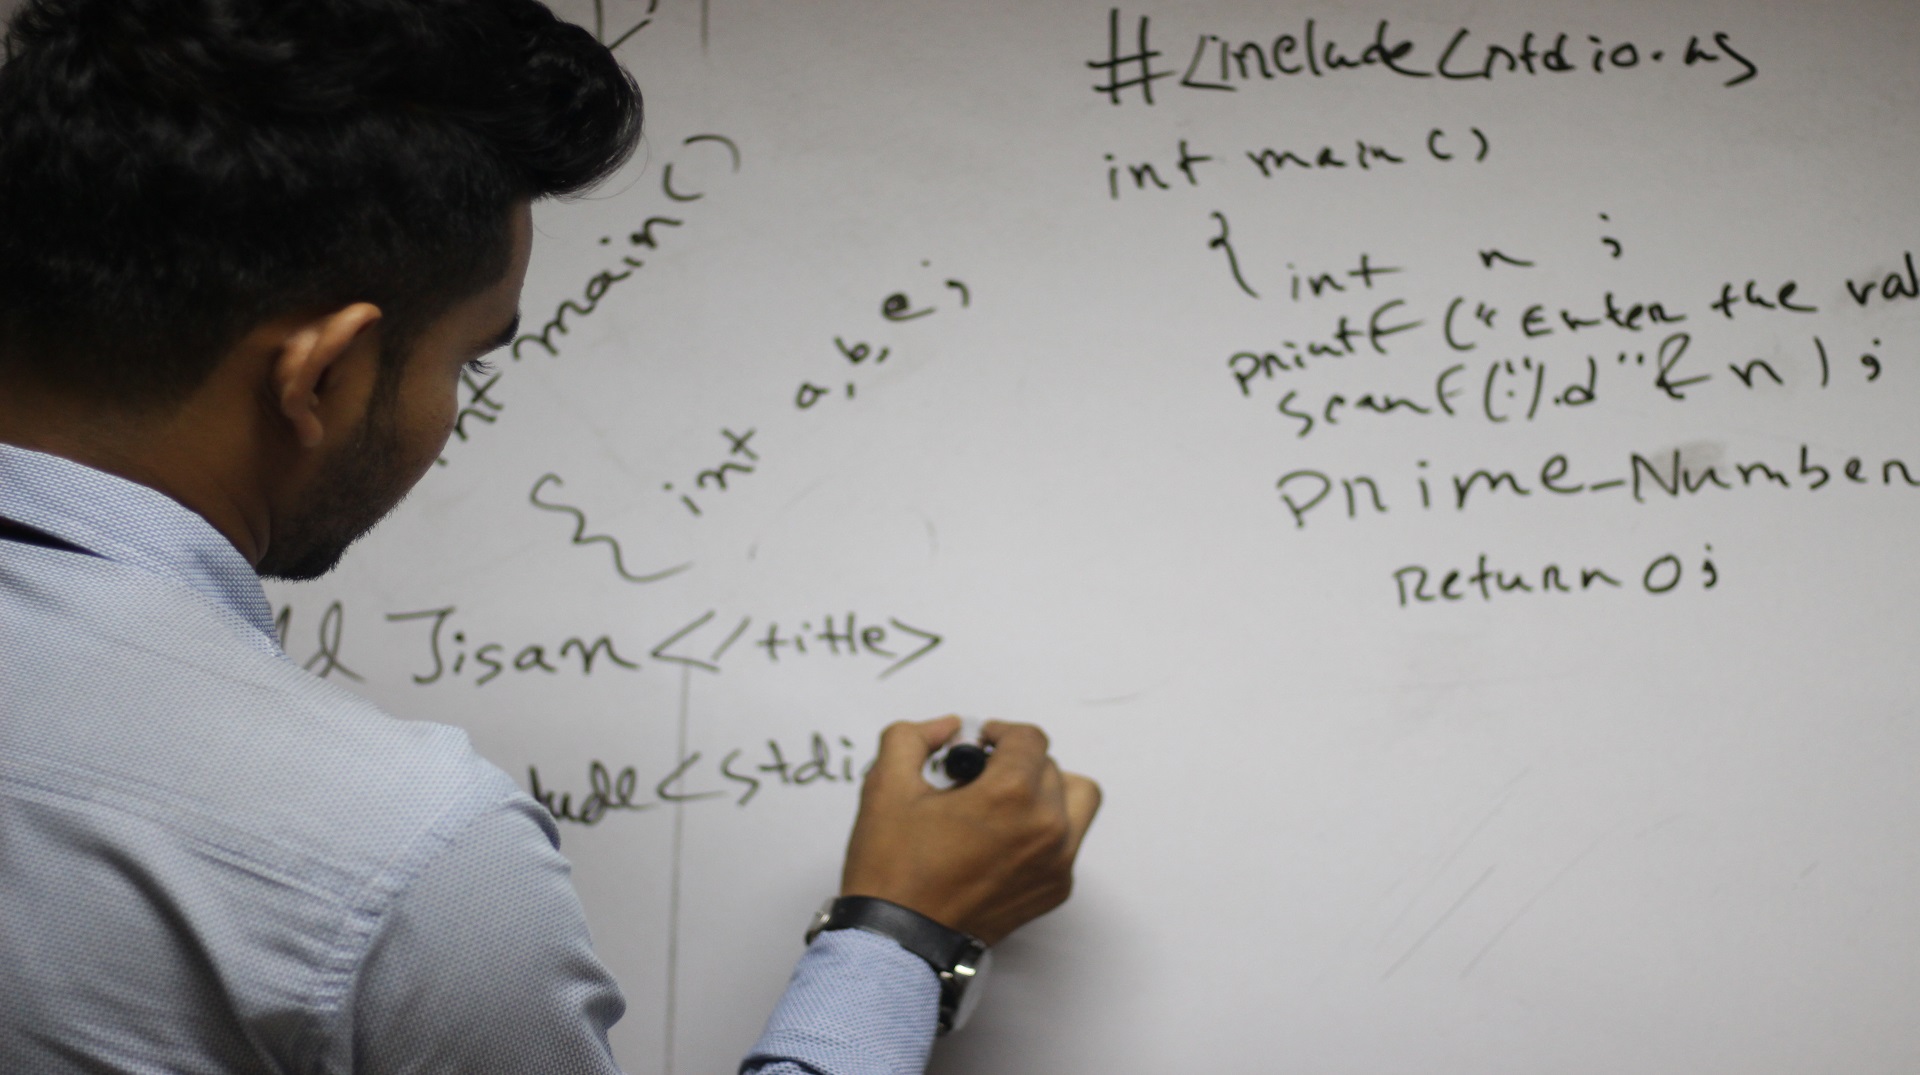 int main()
{ int a, b, c;
Jisan </title>
lude<stdi
#<include<stdio.h>
int main()
{ int n;
printf("Enter the val
scanf("%d"&n);
Prime_Number
Return 0;